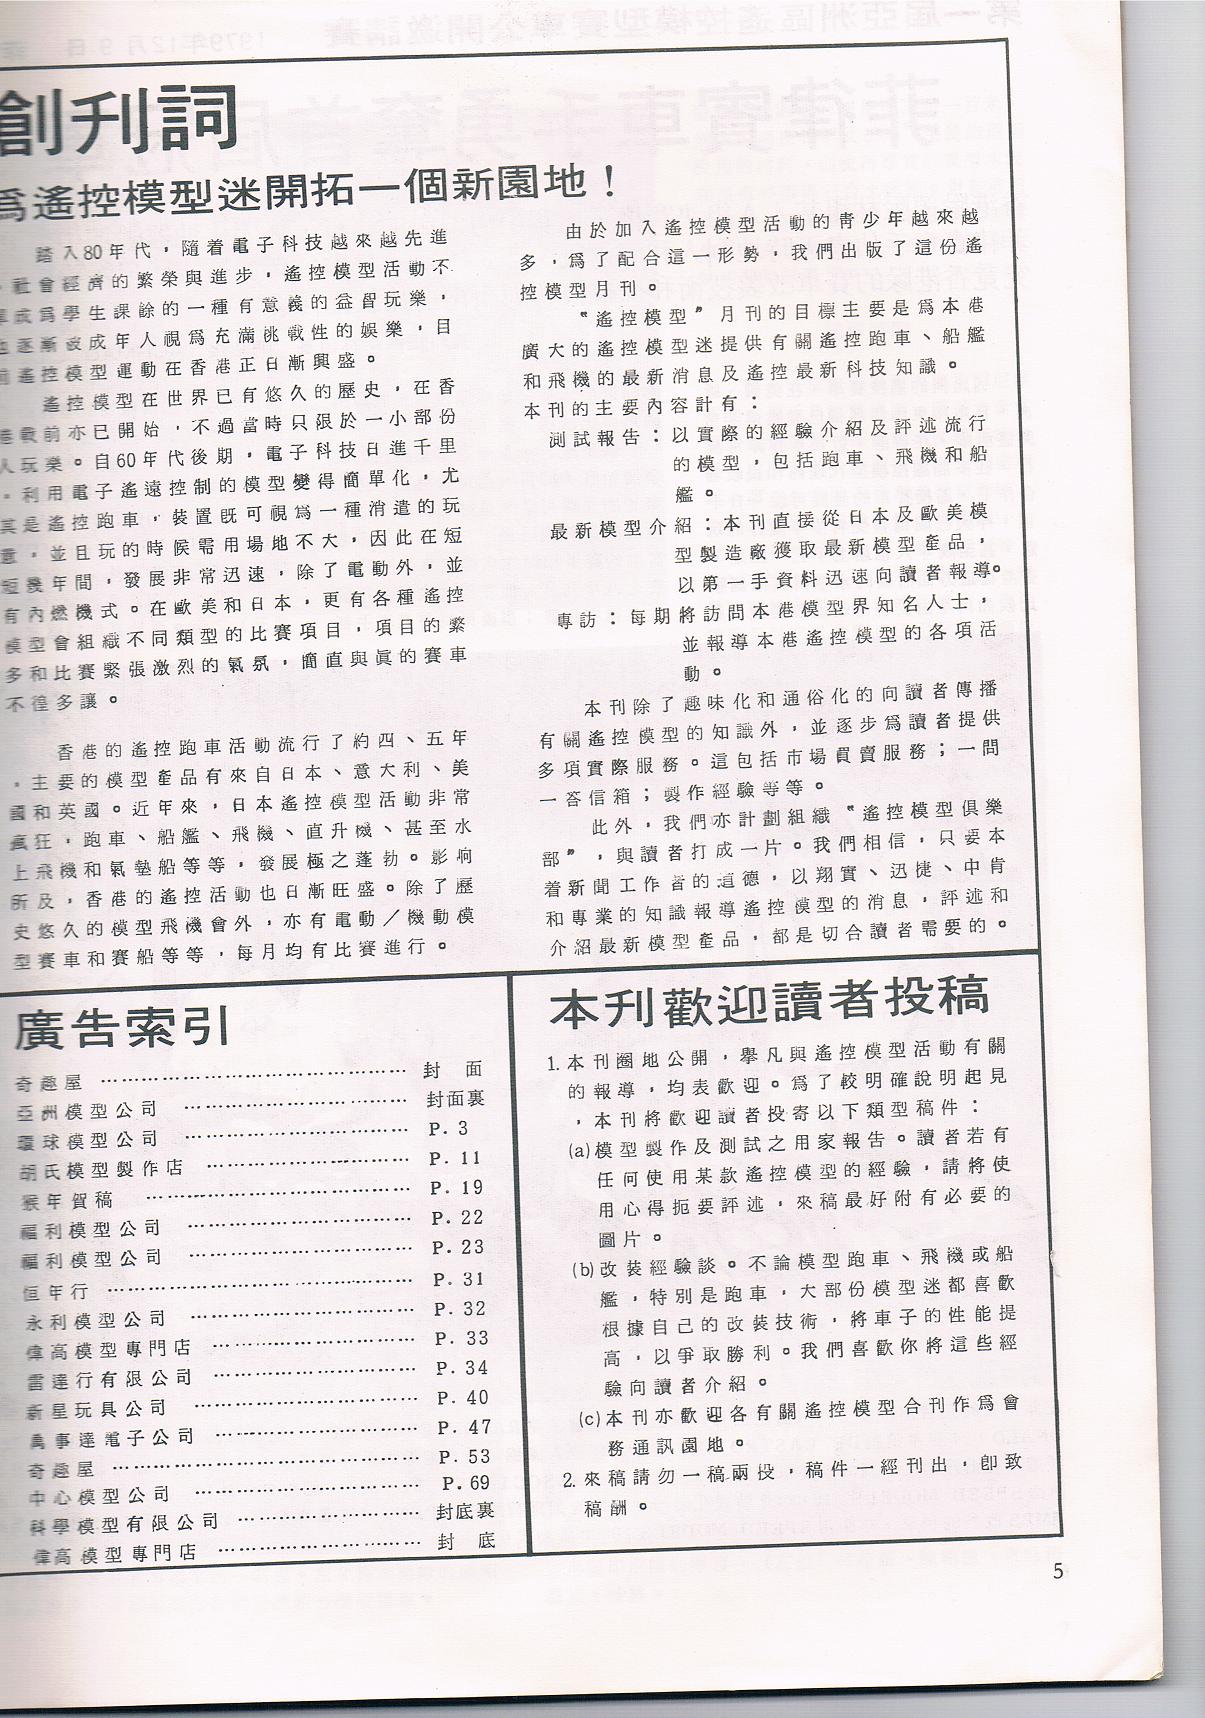 創刋詞
爲遙控模型迷開拓一個新園地！
踏入80年代，隨着電子科技越來越先進
，社會經濟的繁榮與進步，遙控模型活動不
單成爲學生課餘的一種有意義的益智玩樂，
也逐漸改成年人視爲充滿挑戰性的娛樂，目
前遙控模型運動在香港正日漸興盛。
遙控模型在世界已有悠久的歷史，在香
港戰前亦已開始，不過當時只限於一小部份
人玩樂。自60年代後期，電子科技日進千里
。利用電子遙遠控制的模型變得簡單化，尤
其是遙控跑車，裝置旣可視爲一種消遣的玩
意，並且玩的時候需用場地不大，因此在短
短幾年間，發展非常迅速，除了電動外，並
有內燃機式。在歐美和日本，更有各種遙控
模型會組織不同類型的比賽項目，項目的繁
多和比賽緊張激烈的氣氛，簡直與眞的賽車
不徨多讓。
香港的遙控跑車活動流行了約四、五年
，主要的模型產品有來自日本、意大利、美
國和英國。近年來，日本遙控模型活動非常
瘋狂，跑車、船艦、飛機、直升機、甚至水
上飛機和氣墊船等等，發展極之蓬勃。影响
所及，香港的遙控活動也日漸旺盛。除了歷
史悠久的模型飛機會外，亦有電動／機動模
型賽車和賽船等等，每月均有比賽進行。
由於加入遙控模型活動的靑少年越來越
多，爲了配合這一形勢，我們出版了這份遙
控模型月刊。
〝遙控模型〞月刊的目標主要是爲本港
廣大的遙控模型迷提供有關遙控跑車、船艦
和飛機的最新消息及遙控最新科技知識。
本刊的主要內容計有：
測試報告：以實際的經驗介紹及評述流行
的模型，包括跑車、飛機和船
艦。
最新模型介紹：本刊直接從日本及歐美模
型製造廠獲取最新模型產品，
以第一手資料迅速向讀者報導。
專訪：每期將訪問本港模型界知名人士，
並報導本港遙控模型的各項活
動。
本刊除了趣味化和通俗化的向讀者傳播
有關遙控模型的知識外，並逐步爲讀者提供
多項實際服務。這包括市場買賣服務；一問
一答信箱；製作經驗等等。
此外，我們亦計劃組織〝遙控模型俱樂
部〞，與讀者打成一片。我們相信，只要本
着新聞工作者的道德，以翔實、迅捷、中肯
和專業的知識報導遙控模型的消息，評述和
介紹最新模型產品，都是切合讀者需要的。
廣告索引
奇趣屋 ………………………………………… 封 面
亞洲模型公司 …………………………… 封面裏
環球模型公司 …………………………… P. 3
胡氏模型製作店 ………………………… P. 11
猴年賀稿 ………………………………… P. 19
福利模型公司 …………………………… P. 22
福利模型公司 …………………………… P. 23
恒年行 ……………………………………… P. 31
永利模型公司 …………………………… P. 32
偉高模型專門店 ………………………… P. 33
雷達行有限公司 ………………………… P. 34
新星玩具公司 …………………………… P. 40
萬事達電子公司 ………………………… P. 47
奇趣屋 ……………………………………… P. 53
中心模型公司 …………………………… P. 69
科學模型有限公司 ……………………… 封底裏
偉高模型專門店 ………………………… 封 底
本刋歡迎讀者投稿
1. 本刊園地公開，舉凡與遙控模型活動有關
的報導，均表歡迎。爲了較明確說明起見
，本刊將歡迎讀者投寄以下類型稿件：
(a)模型製作及測試之用家報告。讀者若有
任何使用某款遙控模型的經驗，請將使
用心得扼要評述，來稿最好附有必要的
圖片。
(b)改裝經驗談。不論模型跑車、飛機或船
艦，特別是跑車，大部份模型迷都喜歡
根據自己的改裝技術，將車子的性能提
高，以爭取勝利。我們喜歡你將這些經
驗向讀者介紹。
(c)本刊亦歡迎各有關遙控模型合刊作爲會
務通訊園地。
2. 來稿請勿一稿兩投，稿件一經刊出，卽致
稿酬。
5